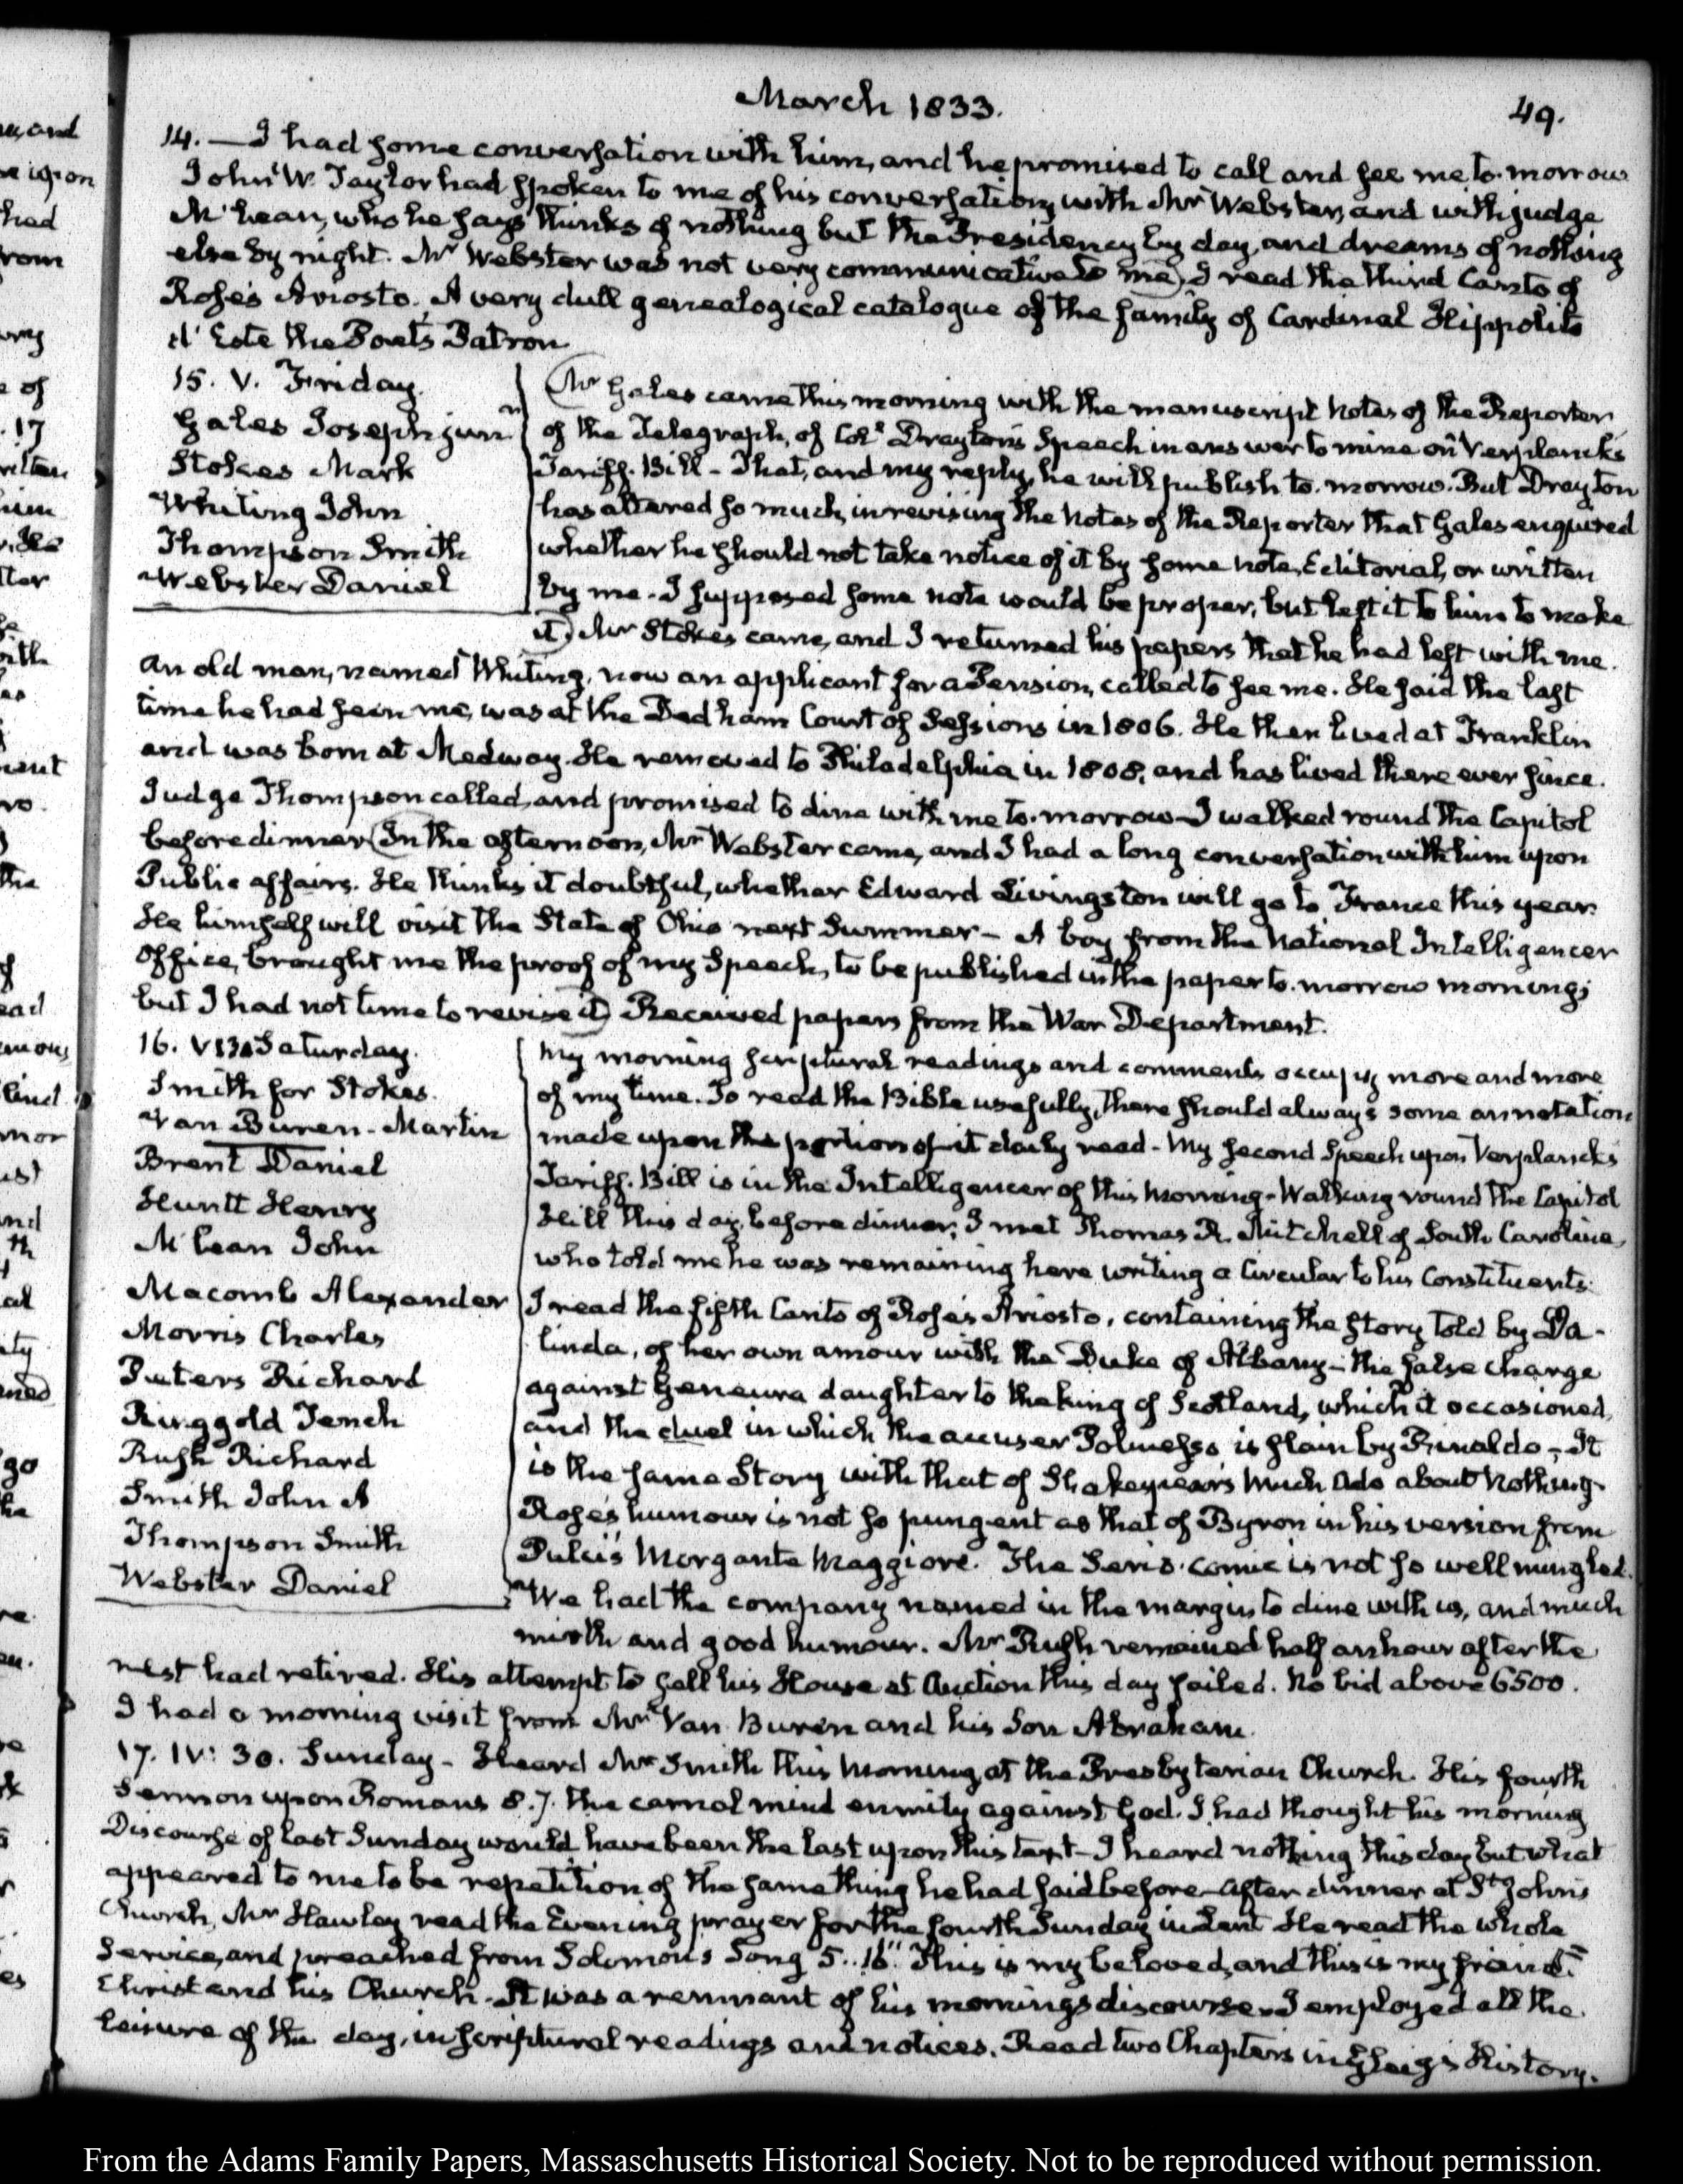 March 1833.
49.
14. — I had some conversation with him, and he promised to call and see me to-morrow
John W. Taylor had spoken to me of his conversations with Mr Webster, and with judge
McLean, who he says thinks of nothing but the Presidency by day, and dreams of nothing
else by night. Mr Webster was not very communicative to me) I read the third Canto of
Rose's Ariosto. A very dull genealogical catalogue of the family of Cardinal Hippolito
d'Este the Poet's Patron
15. V. Friday.
Gales Joseph junr
Stokes Mark
Whiting John
Thompson Smith
Webster Daniel
(Mr Gales came this morning with the manuscript notes of the Reporter
of the Telegraph, of Coll Drayton's Speech in answer to mine on Verplanck's
Tariff-Bill - That, and my reply, he will publish to-morrow. But Drayton
has altered so much, in revising the notes of the Reporter that Gales enquired
whether he should not take notice of it by some note, Editorial, or written
by me. I supposed some note would be proper; but left it to him to make
it) Mr Stokes came, and I returned his papers that he had left with me.
An old man, named Whiting, now an applicant for a Pension, called to see me. He said the last
time he had seen me, was at the Dedham Court of Sessions in 1806. He then lived at Franklin
and was born at Medway. He removed to Philadelphia in 1808, and has lived there ever since.
Judge Thompson called, and promised to dine with me to-morrow - I walked round the Capitol
before dinner (In the afternoon, Mr Webster came, and I had a long conversation with him upon
Public affairs. He thinks it doubtful, whether Edward Livingston will go to France this year.
He himself will visit the State of Ohio next Summer - A boy from the National Intelligencer
Office, brought me the proof of my Speech, to be published in the paper to-morrow morning;
but I had not time to revise it) Received papers from the War Department.
16. V Saturday.
Smith for Stokes.
Van Buren - Martin
Brent Daniel
Huntt Henry
McLean John
Macomb Alexander
Morris Charles
Peters Richard
Ringgold Tench
Rush Richard
Smith John A
Thompson Smith
Webster Daniel
My morning scriptural readings and comments occupy more and more
of my time. To read the Bible usefully, there should always some annotation
made upon the portion of it daily read - My second Speech upon Verplanck's
Tariff-Bill is in the Intelligencer of this Morning - Walking round the Capitol
Hill this day before dinner, I met Thomas R. Mitchell of South Carolina,
who told me he was remaining here writing a Circular to his Constituents.
I read the fifth Canto of Rose's Ariosto, containing the story told by Da-
linda, of her own amour with the Duke of Albany - the false charge
against Geneura daughter to the king of Scotland, which it occasioned,
and the duel in which the accuser Polinesso is slain by Rinaldo - It
is the same Story with that of Shakespear's Much Ado about Nothing.
Rose's humour is not so pungent as that of Byron in his version from
Pulci's Morgante Maggiore. The Serio-comic is not so well mingled.
We had the company named in the margin to dine with us, and much
mirth and good humour. Mr Rush remained half an hour after the
rest had retired. His attempt to sell his House at Auction this day failed. No bid above 6500.
I had a morning visit from Mr Van Buren and his Son Abraham.
17. IV: 30. Sunday - Heard Mr Smith this Morning, at the Presbyterian Church. His fourth
Sermon upon Romans 8. 7. the carnal mind enmity against God. I had thought his morning
Discourse of last Sunday would have been the last upon this text - I heard nothing this day but what
appeared to me to be repetition of the same thing he had said before - After dinner at St John's
Church, Mr Hawley read the Evening prayer for the fourth Sunday in Lent. He read the whole
Service, and preached from Solomon's Song 5..16." This is my beloved, and this is my friend"
Christ and his Church - It was a remnant of his mornings discourse - I employed all the
leisure of the day, in scriptural readings and notices. Read two Chapters in Gleig's History.
From the Adams Family Papers, Massachusetts Historical Society. Not to be reproduced without permission.